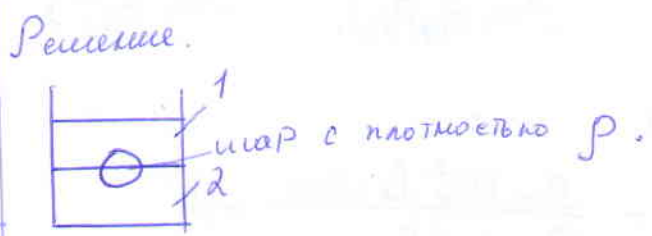 Решение.
1
шар с плотностью ρ.
2